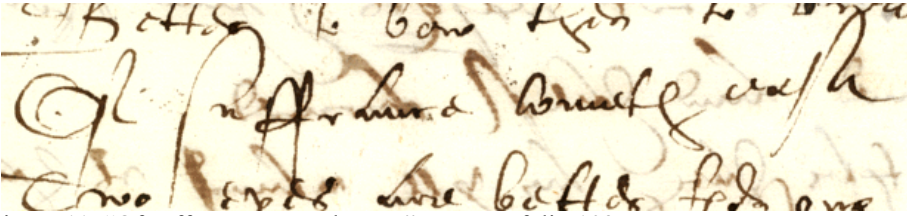 Better to bow then to
Of suffrance cometh ease
Two eyes are better then one